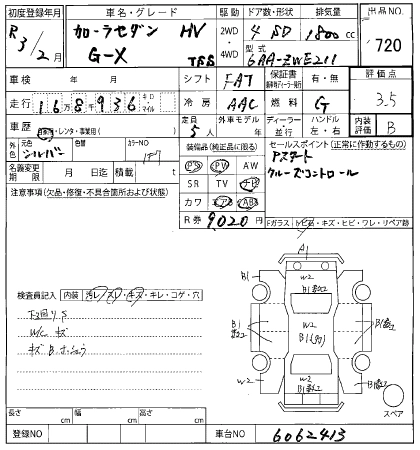 初度登録年月 車名・グレード 駆動 ドア数・形状 排気量 出品NO.
R3/2月 カローラセダン HV 2WD・4WD 4 SD 1800cc 720
G-X TSS 型式 6AA-ZWE211
車検 年 月 シフト FAT 保証書 有・無 評価点
走行 168,936 キロ マイル 冷房 AAC 燃料 G 3.5
車歴 自家用・レンタ・事業用( ) 定員 5人 外車モデル 年 ディーラー・並行 ハンドル 左・右 内装評価 B
外色 元色 シルバー 色替 カラーNO 1F7 装備品(純正品に限る) セールスポイント(正常に作動するもの)
名義変更期限 月 日迄 積載 t PS PV AW アスタート
注意事項(欠品・修復・不具合箇所および状態) SR TV ナビ クルーズコントロール
カワ エアB ABS
R券 9,020円 Fガラス トビ石・キズ・ヒビ・ワレ・リペア跡
A1
B1 W2 B1
B1
検査員記入 内装 汚レ・スレ・キズ・キレ・コゲ・穴
下回りS
W/C キズ
キズBホシュウ
W2
B1
W2 W2
B1
スペア
長さ cm 幅 cm 高さ cm
登録NO 車台NO 6062413